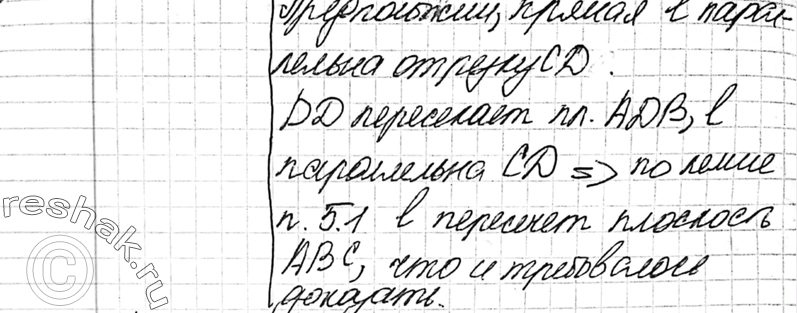 Предположим, прямая b парал-
лельна отрезку CD.
DD пересекает пл. ADB, b
параллельна CD => по лемме
п. 5.1 b пересечет плоскость
ABC, что и требовалось
доказать.
©reshak.ru